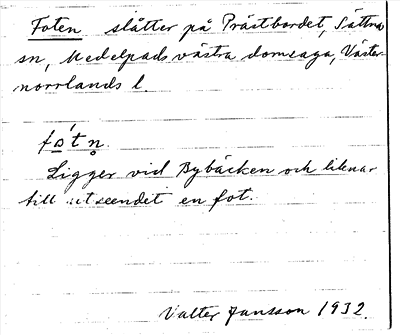 Foten slåtter på Prästbordet, Sättna
sn, Medelpads västra domsaga, Väster-
norrlands l.
fo̲´t n̥.
Ligger vid Bybäcken och liknar
till utseendet en fot.
Valter Jansson 1932.